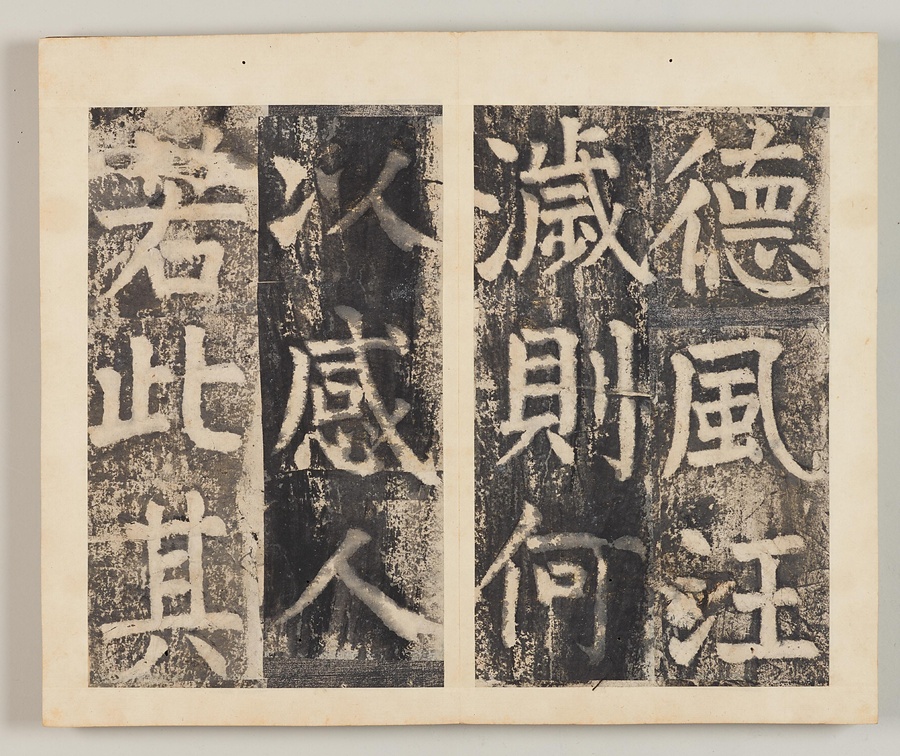 德風汪
濊則何
以感人
若此其